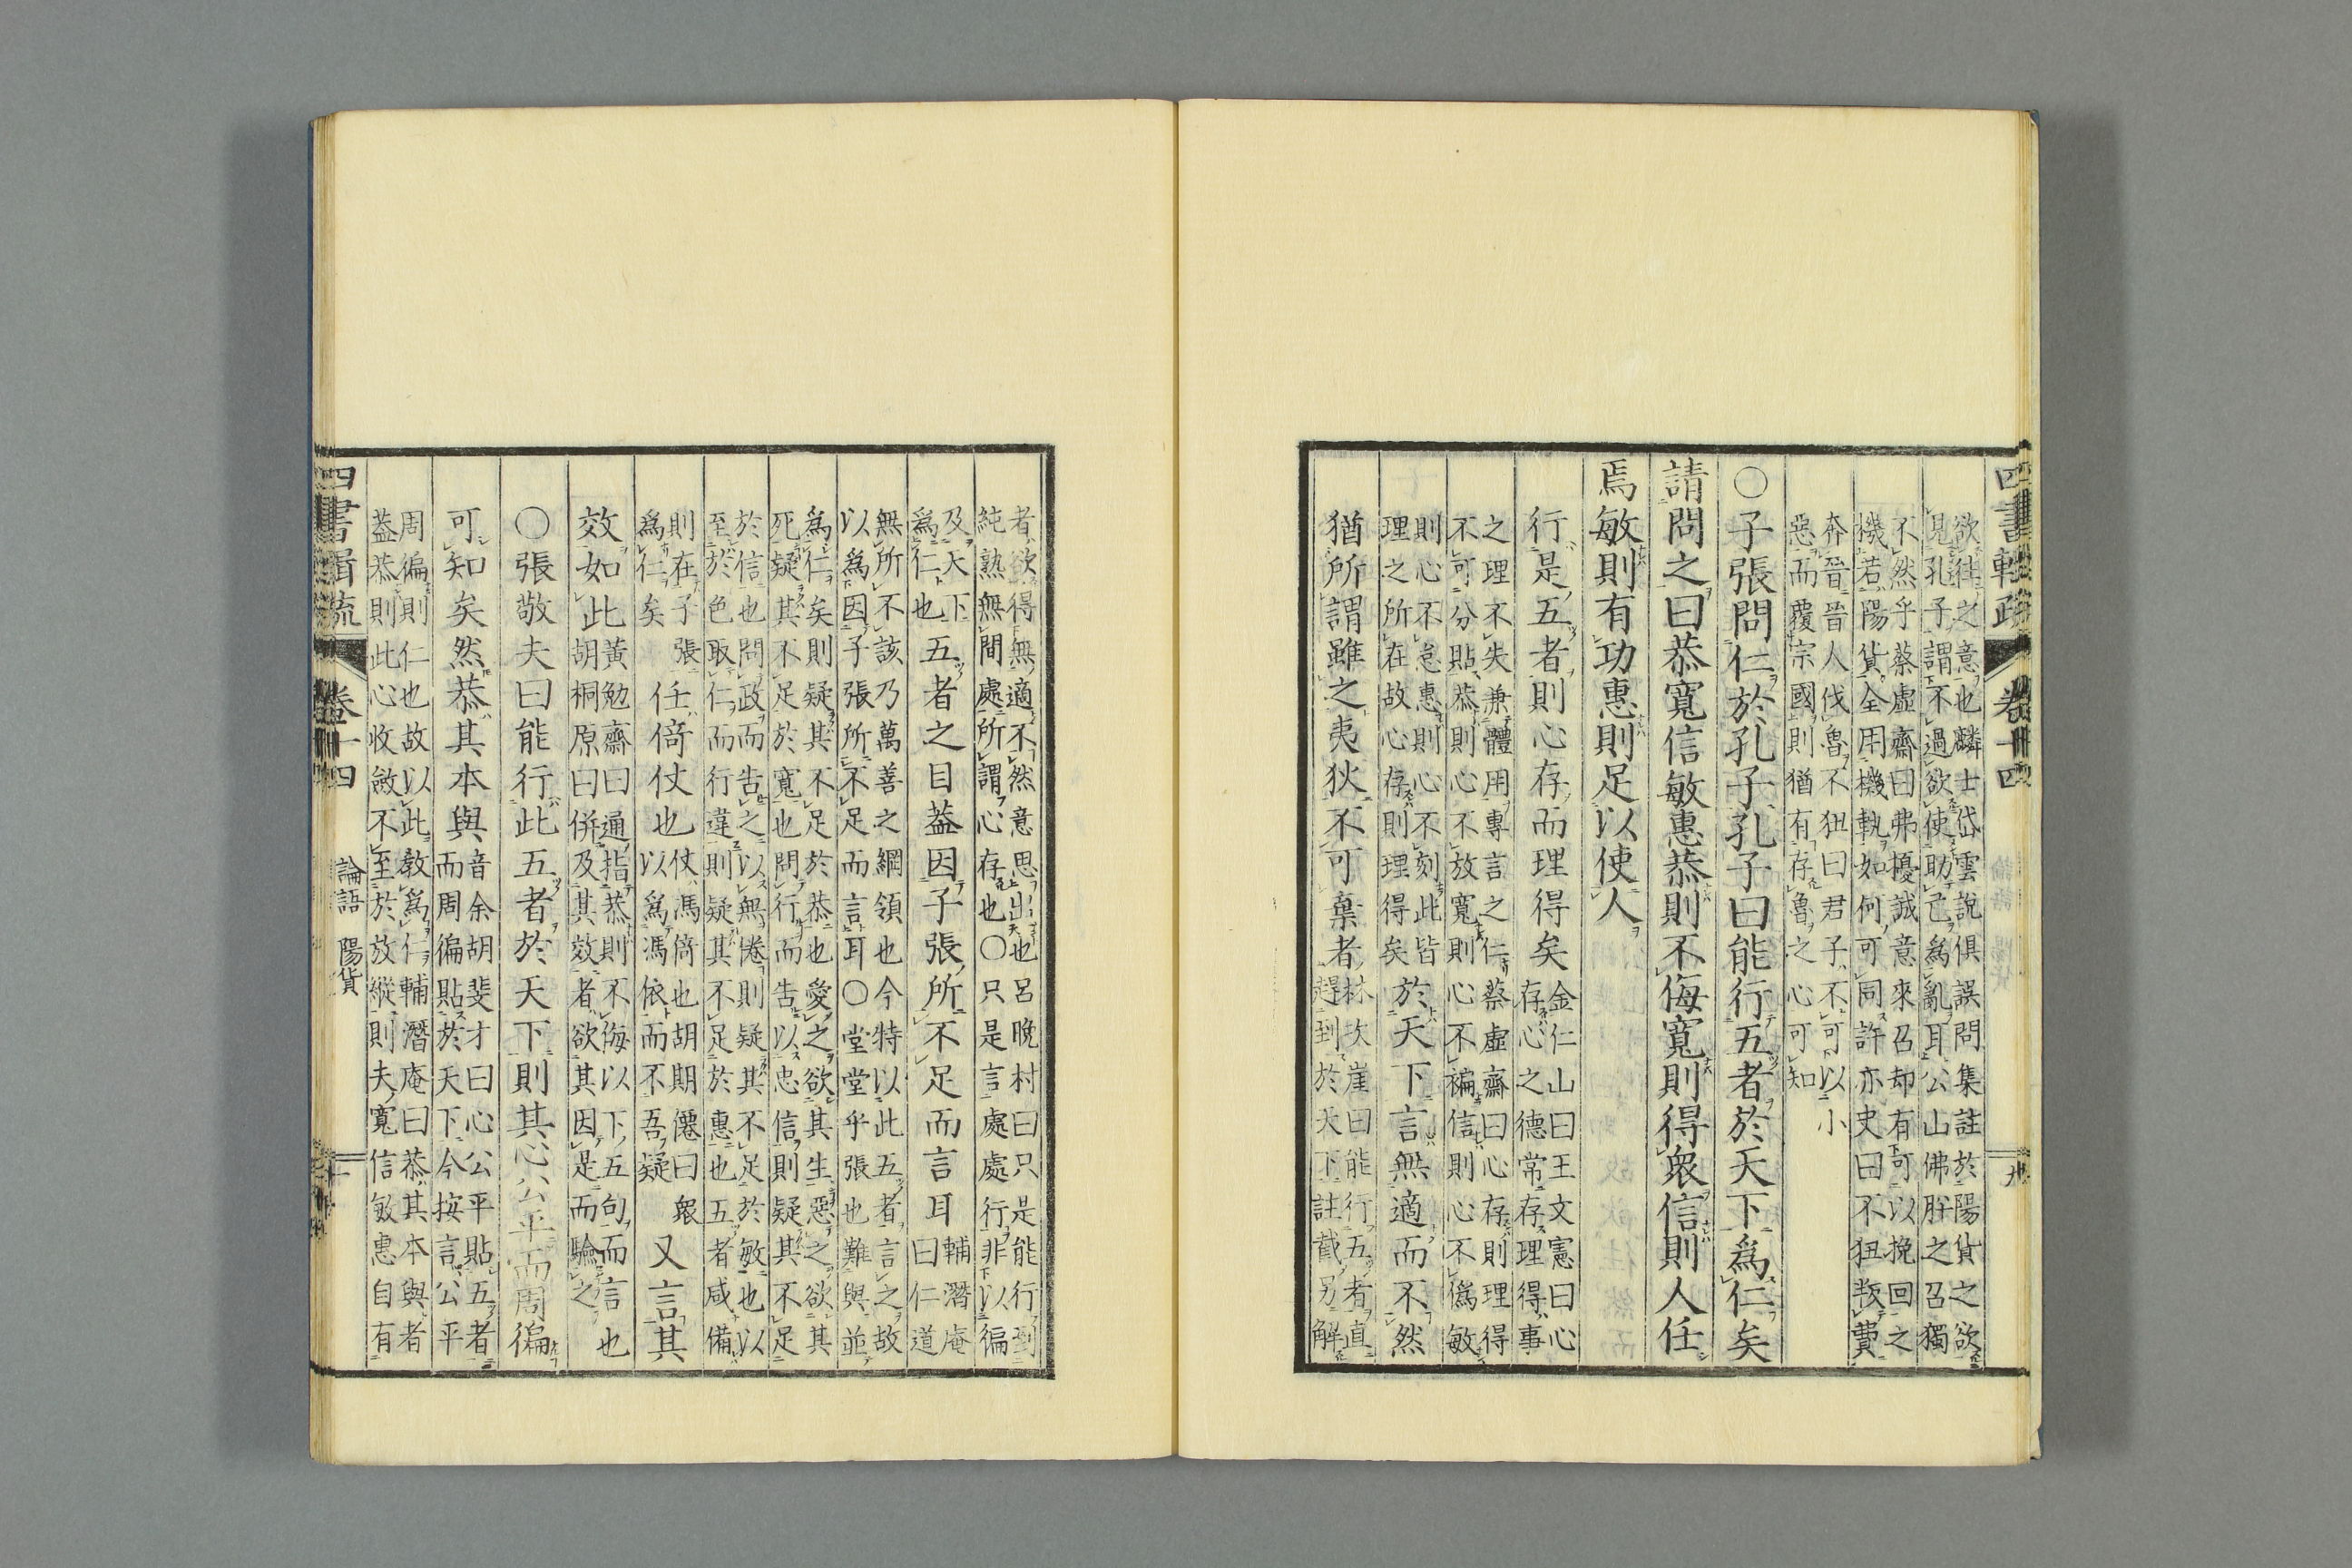 四書輯疏 卷十四 九
欲往之意也麟士岱雲說俱誤問集註於陽貨之欲
見孔子謂不過欲使助己爲亂耳公山佛肸之召獨
不然乎蔡虛齋曰弗擾誠意來召却有可以挽回之
機若陽貨全用機執如何可同許亦史曰不狃叛費
奔晉晉人伐魯不狃曰君子不可以小
惡而覆宗國則猶有存魯之心可知
〇子張問仁於孔子孔子曰能行五者於天下爲仁矣
請問之曰恭寬信敏惠恭則不侮寬則得衆信則人任
焉敏則有功惠則足以使人
行是五者則心存而理得矣
金仁山曰王文憲曰心
存心之德常存理得事
之理不失兼體用專言之仁蔡虛齋曰心存則理得
不可分貼恭則心不放寬則心不褊信則心不僞敏
則心不怠惠則心不刻此皆
理之所在故心存則理得矣
於天下言無適而不然
猶所謂雖之夷狄不可棄者
林次崖曰能行五者直
趕到於天下註截另解
者欲得無適不然意思出也呂晚村曰只是能行到
純熟無間處所謂心存也〇只是言處處行非以徧
及天下
爲仁也
五者之目蓋因子張所不足而言耳
輔潛庵
曰仁道
無所不該乃萬善之綱領也今特以此五者言之故
以爲因子張所不足而言耳〇堂堂乎張也難與並
爲仁矣則疑其不足於恭也愛之欲其生惡之欲其
死疑其不足於寬也問行而告以忠信則疑其不足
於信也問政而告之以無倦則疑其不足於敏也以
至於色取仁而行違則疑其不足於惠也五者咸備
則在子張
爲仁矣
任倚仗也
仗馮倚也胡期僊曰衆
以爲馮依而不吾疑
又言其
效如此
黃勉齋曰通指恭則不侮以下五句而言也
胡桐原曰併及其效者欲其因是而驗之
〇張敬夫曰能行此五者於天下則其心公平而周徧
可知矣然恭其本與
音余胡斐才曰心公平貼五者
而周徧貼於天下今按言公平
周徧則仁也故以此教爲仁輔潛庵曰恭其本與者
蓋恭則此心收斂不至於放縱則夫寬信敏惠自有
四書輯疏 卷十四 論語 陽貨